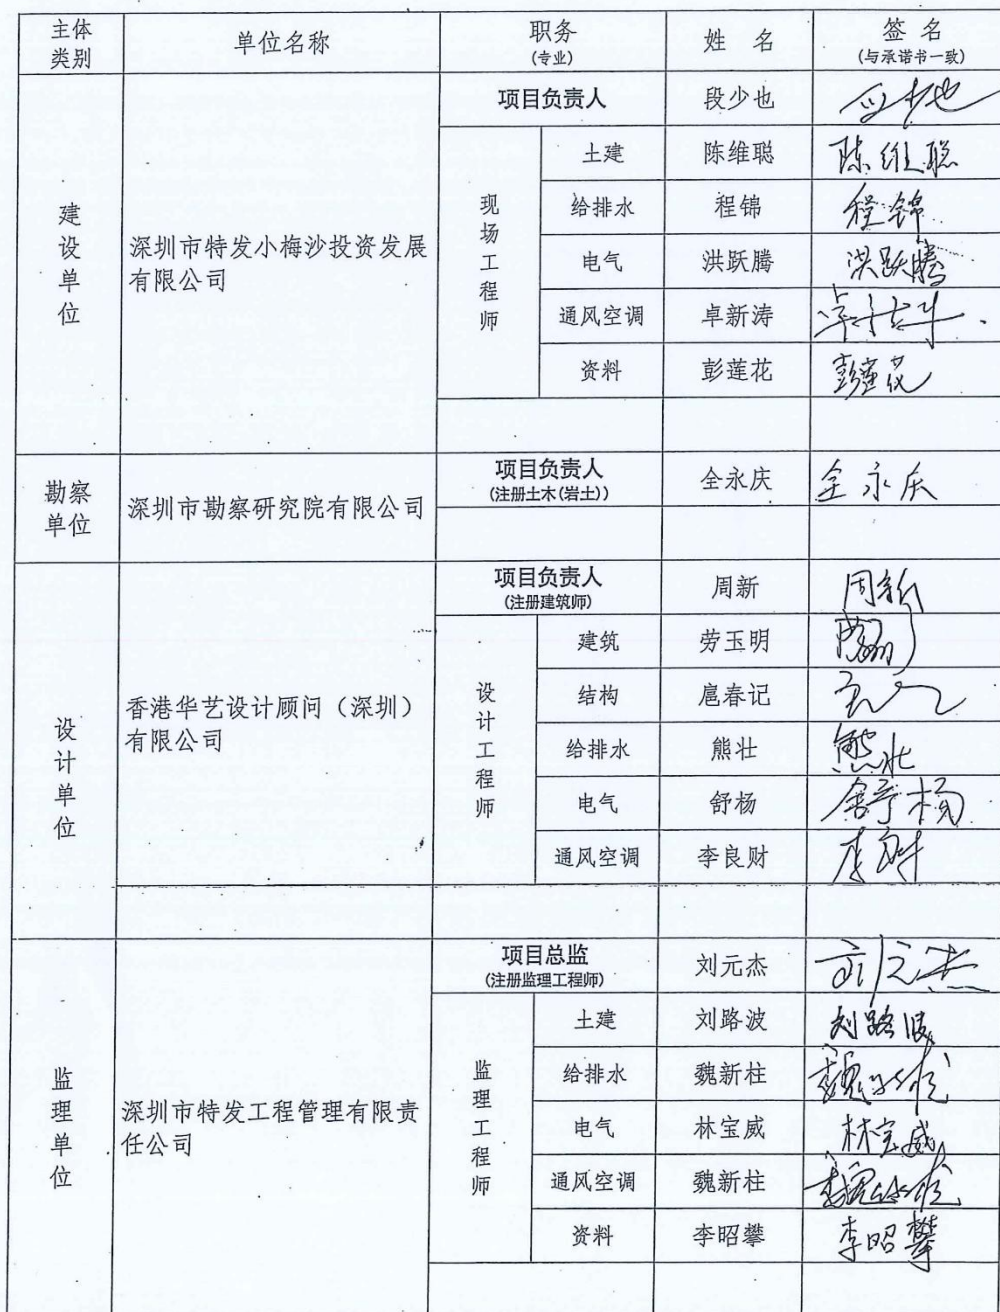 主体类别 单位名称 职务(专业) 姓 名 签 名(与承诺书一致)
建设单位 深圳市特发小梅沙投资发展有限公司
项目负责人 段少也
现场工程师
土建 陈维聪 陈维聪
给排水 程锦 程锦
电气 洪跃腾 洪跃腾
通风空调 卓新涛
资料 彭莲花 彭莲花
勘察单位 深圳市勘察研究院有限公司
项目负责人(注册土木(岩土)) 全永庆 全永庆
设计单位 香港华艺设计顾问（深圳）有限公司
项目负责人(注册建筑师) 周新 周新
设计工程师
建筑 劳玉明
结构 扈春记
给排水 熊壮 熊壮
电气 舒杨 舒杨
通风空调 李良财
监理单位 深圳市特发工程管理有限责任公司
项目总监(注册监理工程师) 刘元杰 刘元杰
监理工程师
土建 刘路波 刘路波
给排水 魏新柱 魏新柱
电气 林宝威 林宝威
通风空调 魏新柱 魏新柱
资料 李昭攀 李昭攀